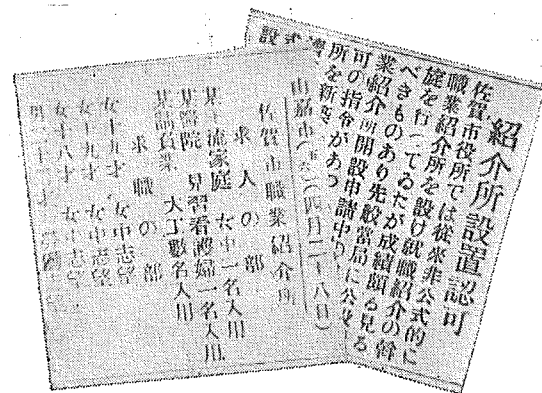 紹介所設置認可
佐賀市役所では從來非公式的に
職業紹介所を設け就職紹介の斡
旋を行つてゐたが成績頗る見る
べきものあり先般當局に公設
業紹介所開設申請中
可の指令があつ
所を新設
佐賀市職業紹介所
求人の部
某上流家庭 女中一名入用
某醫院 見習看護婦一名入用
某請負業 大工數名入用
求職の部
女十九才 女中志望
女十九才 女中志望
女十八才 女中志望